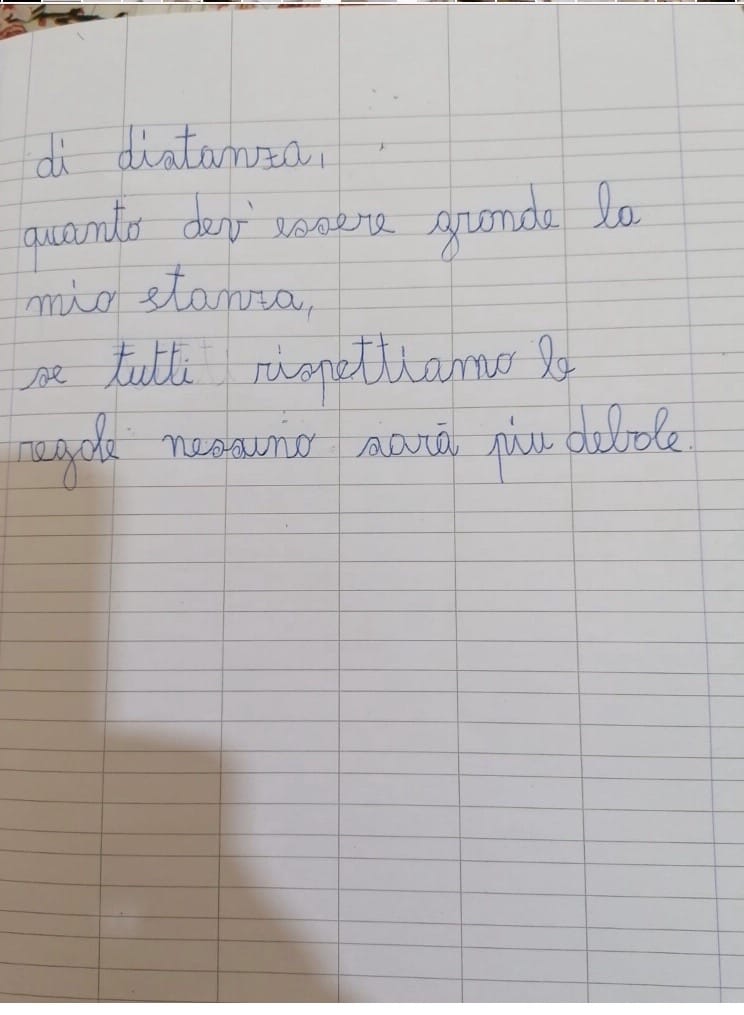 di distanza,
quanto dev'essere grande la
mia stanza,
se tutti rispettiamo le
regole nessuno sarà piu debole.